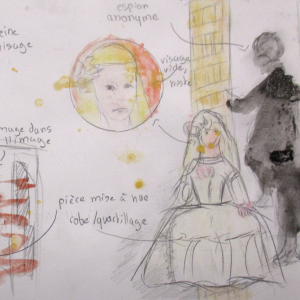 espion
anonyme
eine
isage
visage
vide,
mage dans
l'image
pièce mise à nue
robe/quadrillage